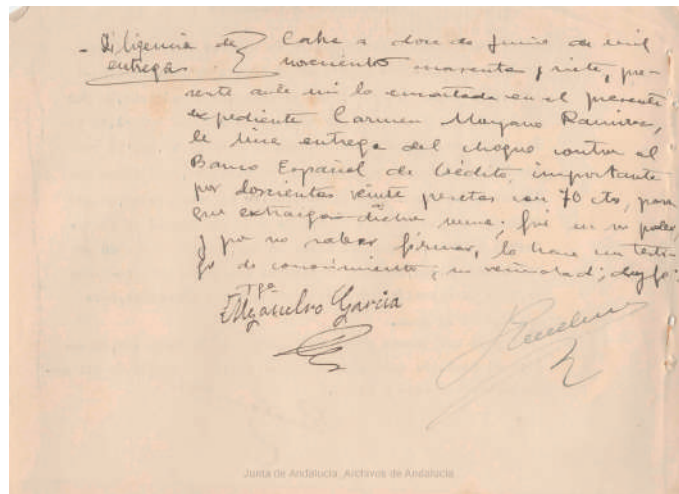 - Diligencia de Cabra a doce de Junio de mil
entrega novecientos cuarenta y siete, pre-
sente ante mi la encartada en el presente
expediente Carmen Moyano Ramirez,
le hice entrega del cheque contra el
Banco Español de Crédito, importante
por doscientas veinte pesetas con 70 cts, para
que extraiga dicha suma; fué en su poder,
y por no saber firmar, lo hace un testi-
go de conocimiento, su vecindad; doy fe:
Tgo
García
Junta de Andalucía. Archivos de Andalucía